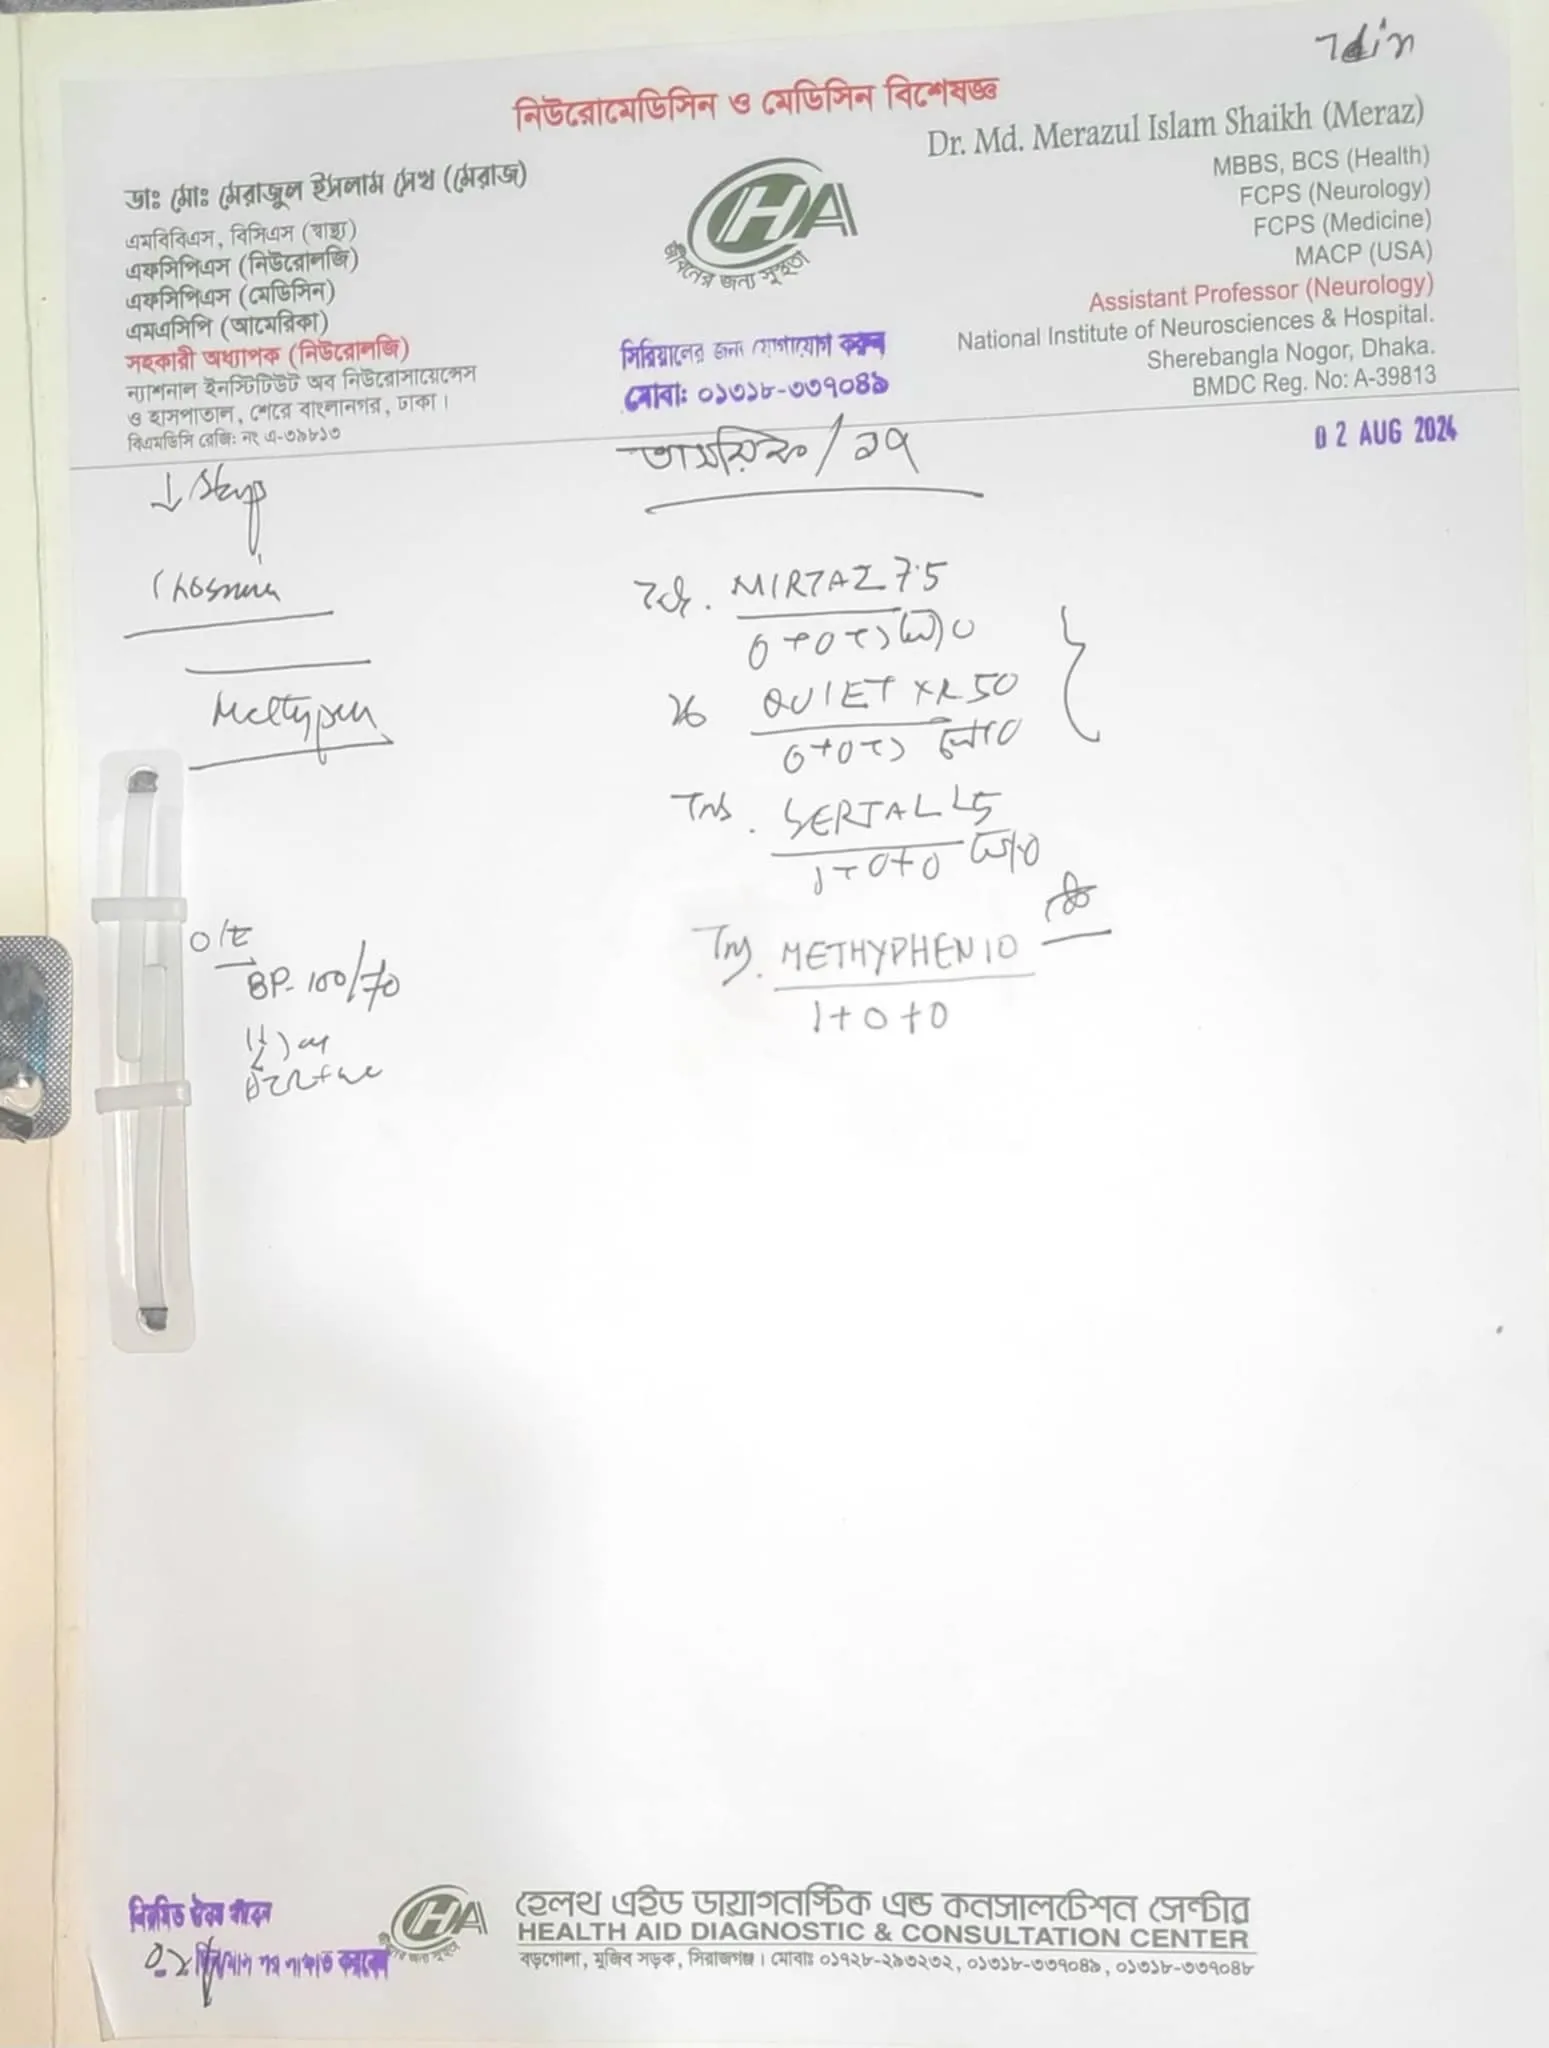 নিউরোমেডিসিন ও মেডিসিন বিশেষজ্ঞ
ডাঃ মোঃ মেরাজুল ইসলাম সেখ (মেরাজ)
এমবিবিএস, বিসিএস (স্বাস্থ্য)
এফসিপিএস (নিউরোলজি)
এফসিপিএস (মেডিসিন)
এমএসিপি (আমেরিকা)
সহকারী অধ্যাপক (নিউরোলজি)
ন্যাশনাল ইনস্টিটিউট অব নিউরোসায়েন্সেস
ও হাসপাতাল, শেরে বাংলানগর, ঢাকা।
বিএমডিসি রেজি: নং এ-৩৯৮১৩
CHA
জীবনের জন্য সুস্থতা
সিরিয়ালের জন্য যোগাযোগ করুন
মোবা: ০১৩১৮-৩৩৭০৪৯
Dr. Md. Merazul Islam Shaikh (Meraz)
MBBS, BCS (Health)
FCPS (Neurology)
FCPS (Medicine)
MACP (USA)
Assistant Professor (Neurology)
National Institute of Neurosciences & Hospital.
Sherebangla Nogor, Dhaka.
BMDC Reg. No: A-39813
02 AUG 2024
↓ Sleep
O/E
BP- 100/70
MIRTAZ 7.5
0+0+১
QUIET XR 50
0+0+১
SERTAL 25
1+0+0
METHYPHEN 10
1+0+0
নিয়মিত ঔষধ খাবেন
০২ পর সাক্ষাত করবেন
CHA
হেলথ এইড ডায়াগনস্টিক এন্ড কনসালটেশন সেন্টার
HEALTH AID DIAGNOSTIC & CONSULTATION CENTER
বড়গোলা, মুজিব সড়ক, সিরাজগঞ্জ। মোবাঃ ০১৭২৮-২৯৩২৩২, ০১৩১৮-৩৩৭০৪৯, ০১৩১৮-৩৩৭০৪৮